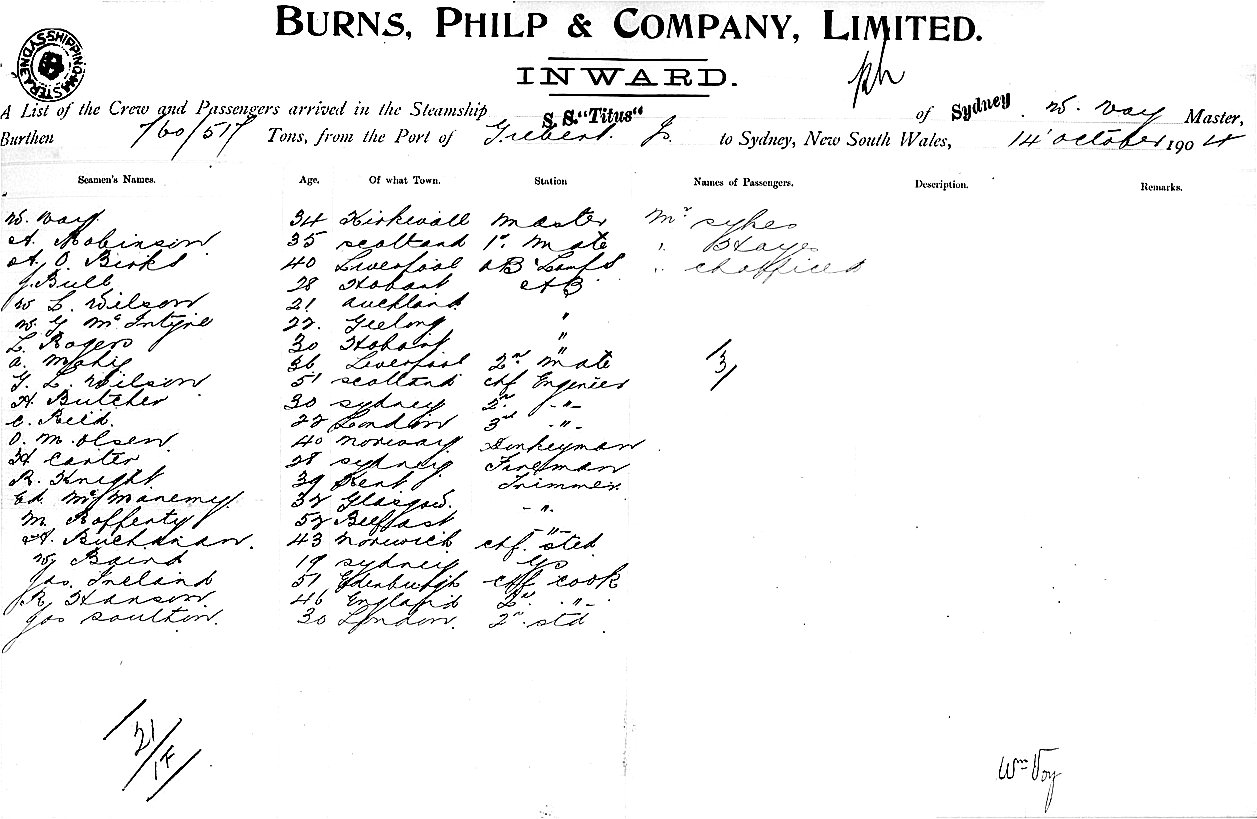 BURNS, PHILP & COMPANY, LIMITED.
SYDNEY SHIPPING MASTER
INWARD.
A List of the Crew and Passengers arrived in the Steamship S.S. "Titus" of Sydney. W. Voy Master,
Burthen 760/517 Tons, from the Port of Gilbert Is to Sydney, New South Wales, 14 October 1904
Seamen's Names. Age. Of what Town. Station Names of Passengers. Description. Remarks.
W. Voy 34 Kirkwall Master Mr Sykes
A. Robinson 35 Scotland 1st Mate " Hayes
A. O. Birks 40 Liverpool AB "
J. Bull 28 Hobart AB
W L. Wilson 21 Auckland "
W. G McIntyre 22. Geelong "
L. Rogers 30 Hobart "
A. 36 Liverpool 2nd Mate 3
G. L. Wilson 51 Scotland Chf Engenier
H. Butcher 30 Sydney 2nd -"-
C. Reid. 22 London 3rd -"-
O. M. Olsen 40 Norway Donkeyman
H Carter 28 Sydney Fireman
R. Knight 39 Kent Trimmer
Ed. McManemy 32 Glasgow. -"-
M. Rafferty 52 Belfast -"-
A. Buchanan. 43 Norwich Chf. Sted
W Baird 19 Sydney
Jas. Ireland 51 Edenburgh Chf Cook
R Hanson 46 England 2nd "-
Jas Southin. 30 London. 2nd Std
21/17
Wm Voy